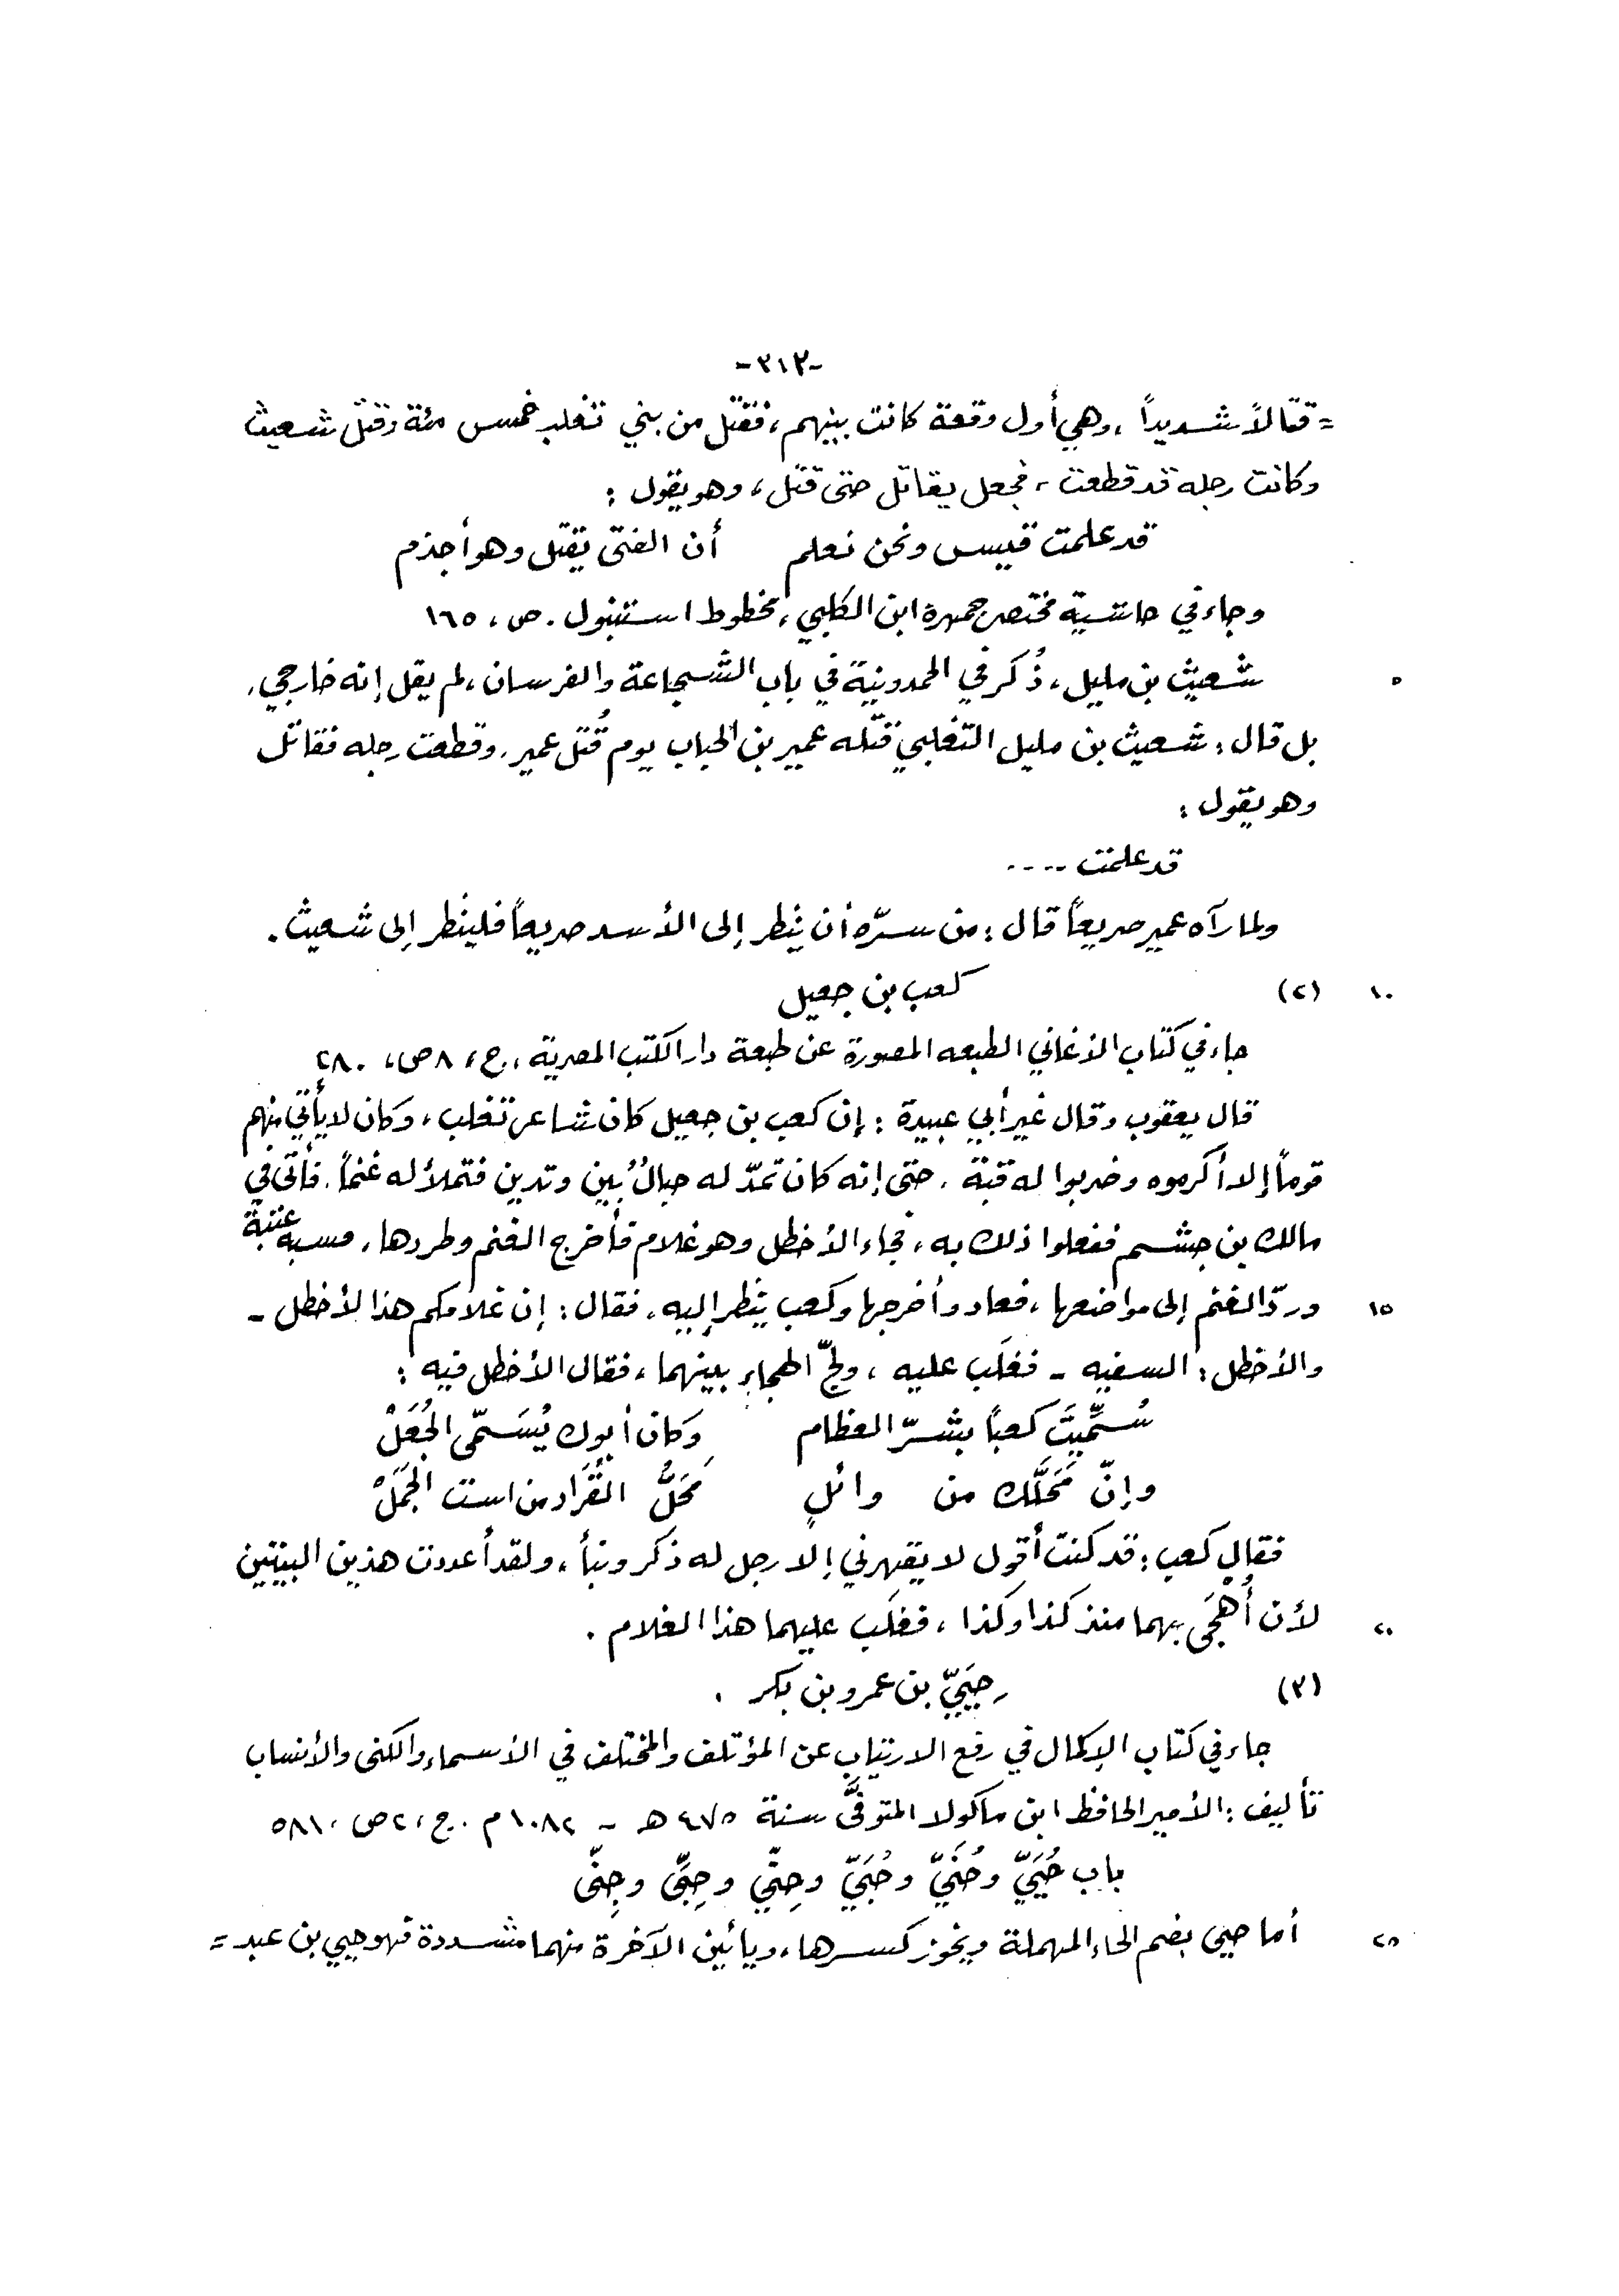 -٣١٣-
= قتالاً شديداً، وهي أول وقعة كانت بينهم، فقتل من بني تغلب خمس مئة وقتل شعيث
وكانت رجله قد قطعت، فجعل يقاتل حتى قتل، وهو يقول:
قد علمت قيس ونحن نعلم أن الفتى يقتل وهو أجذم
وجاء في حاشية مختصر جمهرة ابن الكلبي، مخطوط استنبول. ص، ١٦٥
٥ شعيث بن مليل، ذُكر في الحمدونية في باب الشجاعة والفرسان، لم يقل إنه خارجي،
بل قال: شعيث بن مليل التغلبي قتله عمير بن الحباب يوم قُتل عمير، وقطعت رجله فقاتل
وهو يقول:
قد علمت ....
ولما رآه عمير صريعاً قال: من سرّه أن ينظر إلى الأسد صريعاً فلينظر إلى شعيث.
١٠ (٢) كعب بن جعيل
جاء في كتاب الأغاني الطبعه المصورة عن طبعة دار الكتب المصرية، ج، ٨ ص، ٢٨٠
قال يعقوب وقال غير أبي عبيدة: إن كعب بن جعيل كان شاعر تغلب، وكان لا يأتي منهم
قوماً إلا أكرموه وضربوا له قبّة، حتى إنه كان تمدّ له حبالٌ بين وتدين فتملأ له غنماً، فأتى في
مالك بن جشم ففعلوا ذلك به، فجاء الأخطل وهو غلام فأخرج الغنم وطردها، فسبه عتبة
١٥ وردّ الغنم إلى مواضعها، فعاد وأخرجها وكعب ينظر إليه، فقال: إن غلامكم هذا لأخطل -
والأخطل: السفيه - فغلَب عليه، ولجّ الهجاء بينهما، فقال الأخطل فيه:
سُمِّيتَ كعباً بشرّ العظام وكان أبوك يُسَمّى الجُعَلْ
وإنّ مَحَلَّك من وائلٍ مَحَلُّ القُرَاد من است الجَمَلْ
فقال كعب: قد كنت أقول لا يقهرني إلا رجل له ذكر ونبأ، ولقد أعددت هذين البيتين
٢٠ لأن أُهْجَى بهما منذ كذا وكذا، فغلَب عليهما هذا الغلام.
(٣) حِيَيّ بن عمرو بن بكر.
جاء في كتاب الإكمال في رفع الارتياب عن المؤتلف والمختلف في الأسماء والكنى والأنساب
تأليف: الأمير الحافظ ابن ماكولا المتوفَّى سنة ٤٧٥ هـ - ١٠٨٢ م. ج، ٢ ص، ٥٨١
باب حُيَيّ وحُنَيّ وحُبَيّ وحِتّي وحِبَّى وجِنّى
٢٥ أما حيي بضم الحاء المهملة ويجوز كسرها، وبيائين الآخرة منهما مشددة فهو حيي بن عبد =